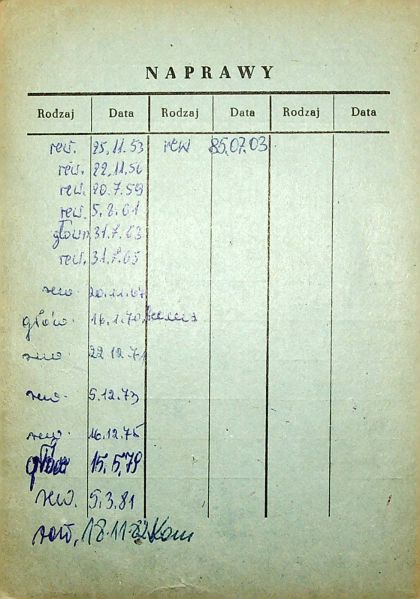 NAPRAWY
Rodzaj Data Rodzaj Data Rodzaj Data
rew. 25.11.53 rew 85.07.03
rew. 22.11.56
rew. 20.7.59
rew. 5.2.61
główn 31.7.63
rew. 31.7.65
rew 20.11.67
głów. 16.1.70
rew 22 12.71
rew. 5.12.73
rew. 16.12.75
głów 15.5.79
rew. 5.3.81
18.11.82